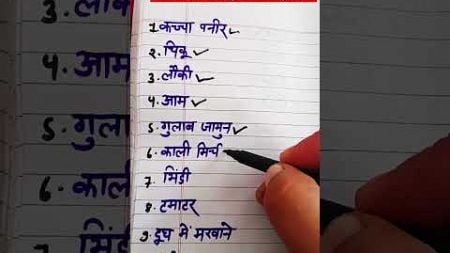 1. कच्चा पनीर ✓
2. चिकू ✓
3. लौकी ✓
4. आम ✓
5. गुलाब जामुन ✓
6. काली मिर्च
7. भिंडी
8. टमाटर
9. दूध में मखाने
3. लौ
4. आम
5. गुला
6. काल